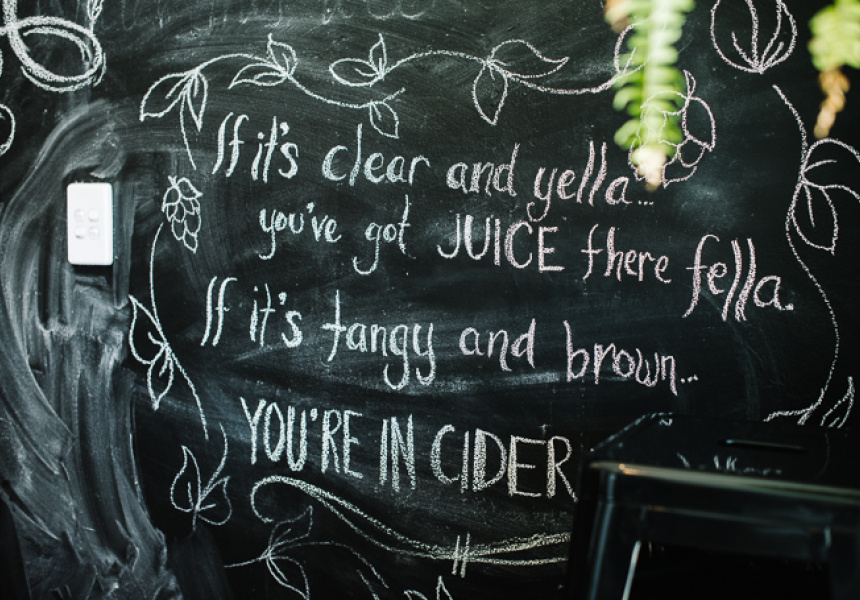 If it's clear and yella...
you've got JUICE there fella.
If it's tangy and brown...
YOU'RE IN CIDER